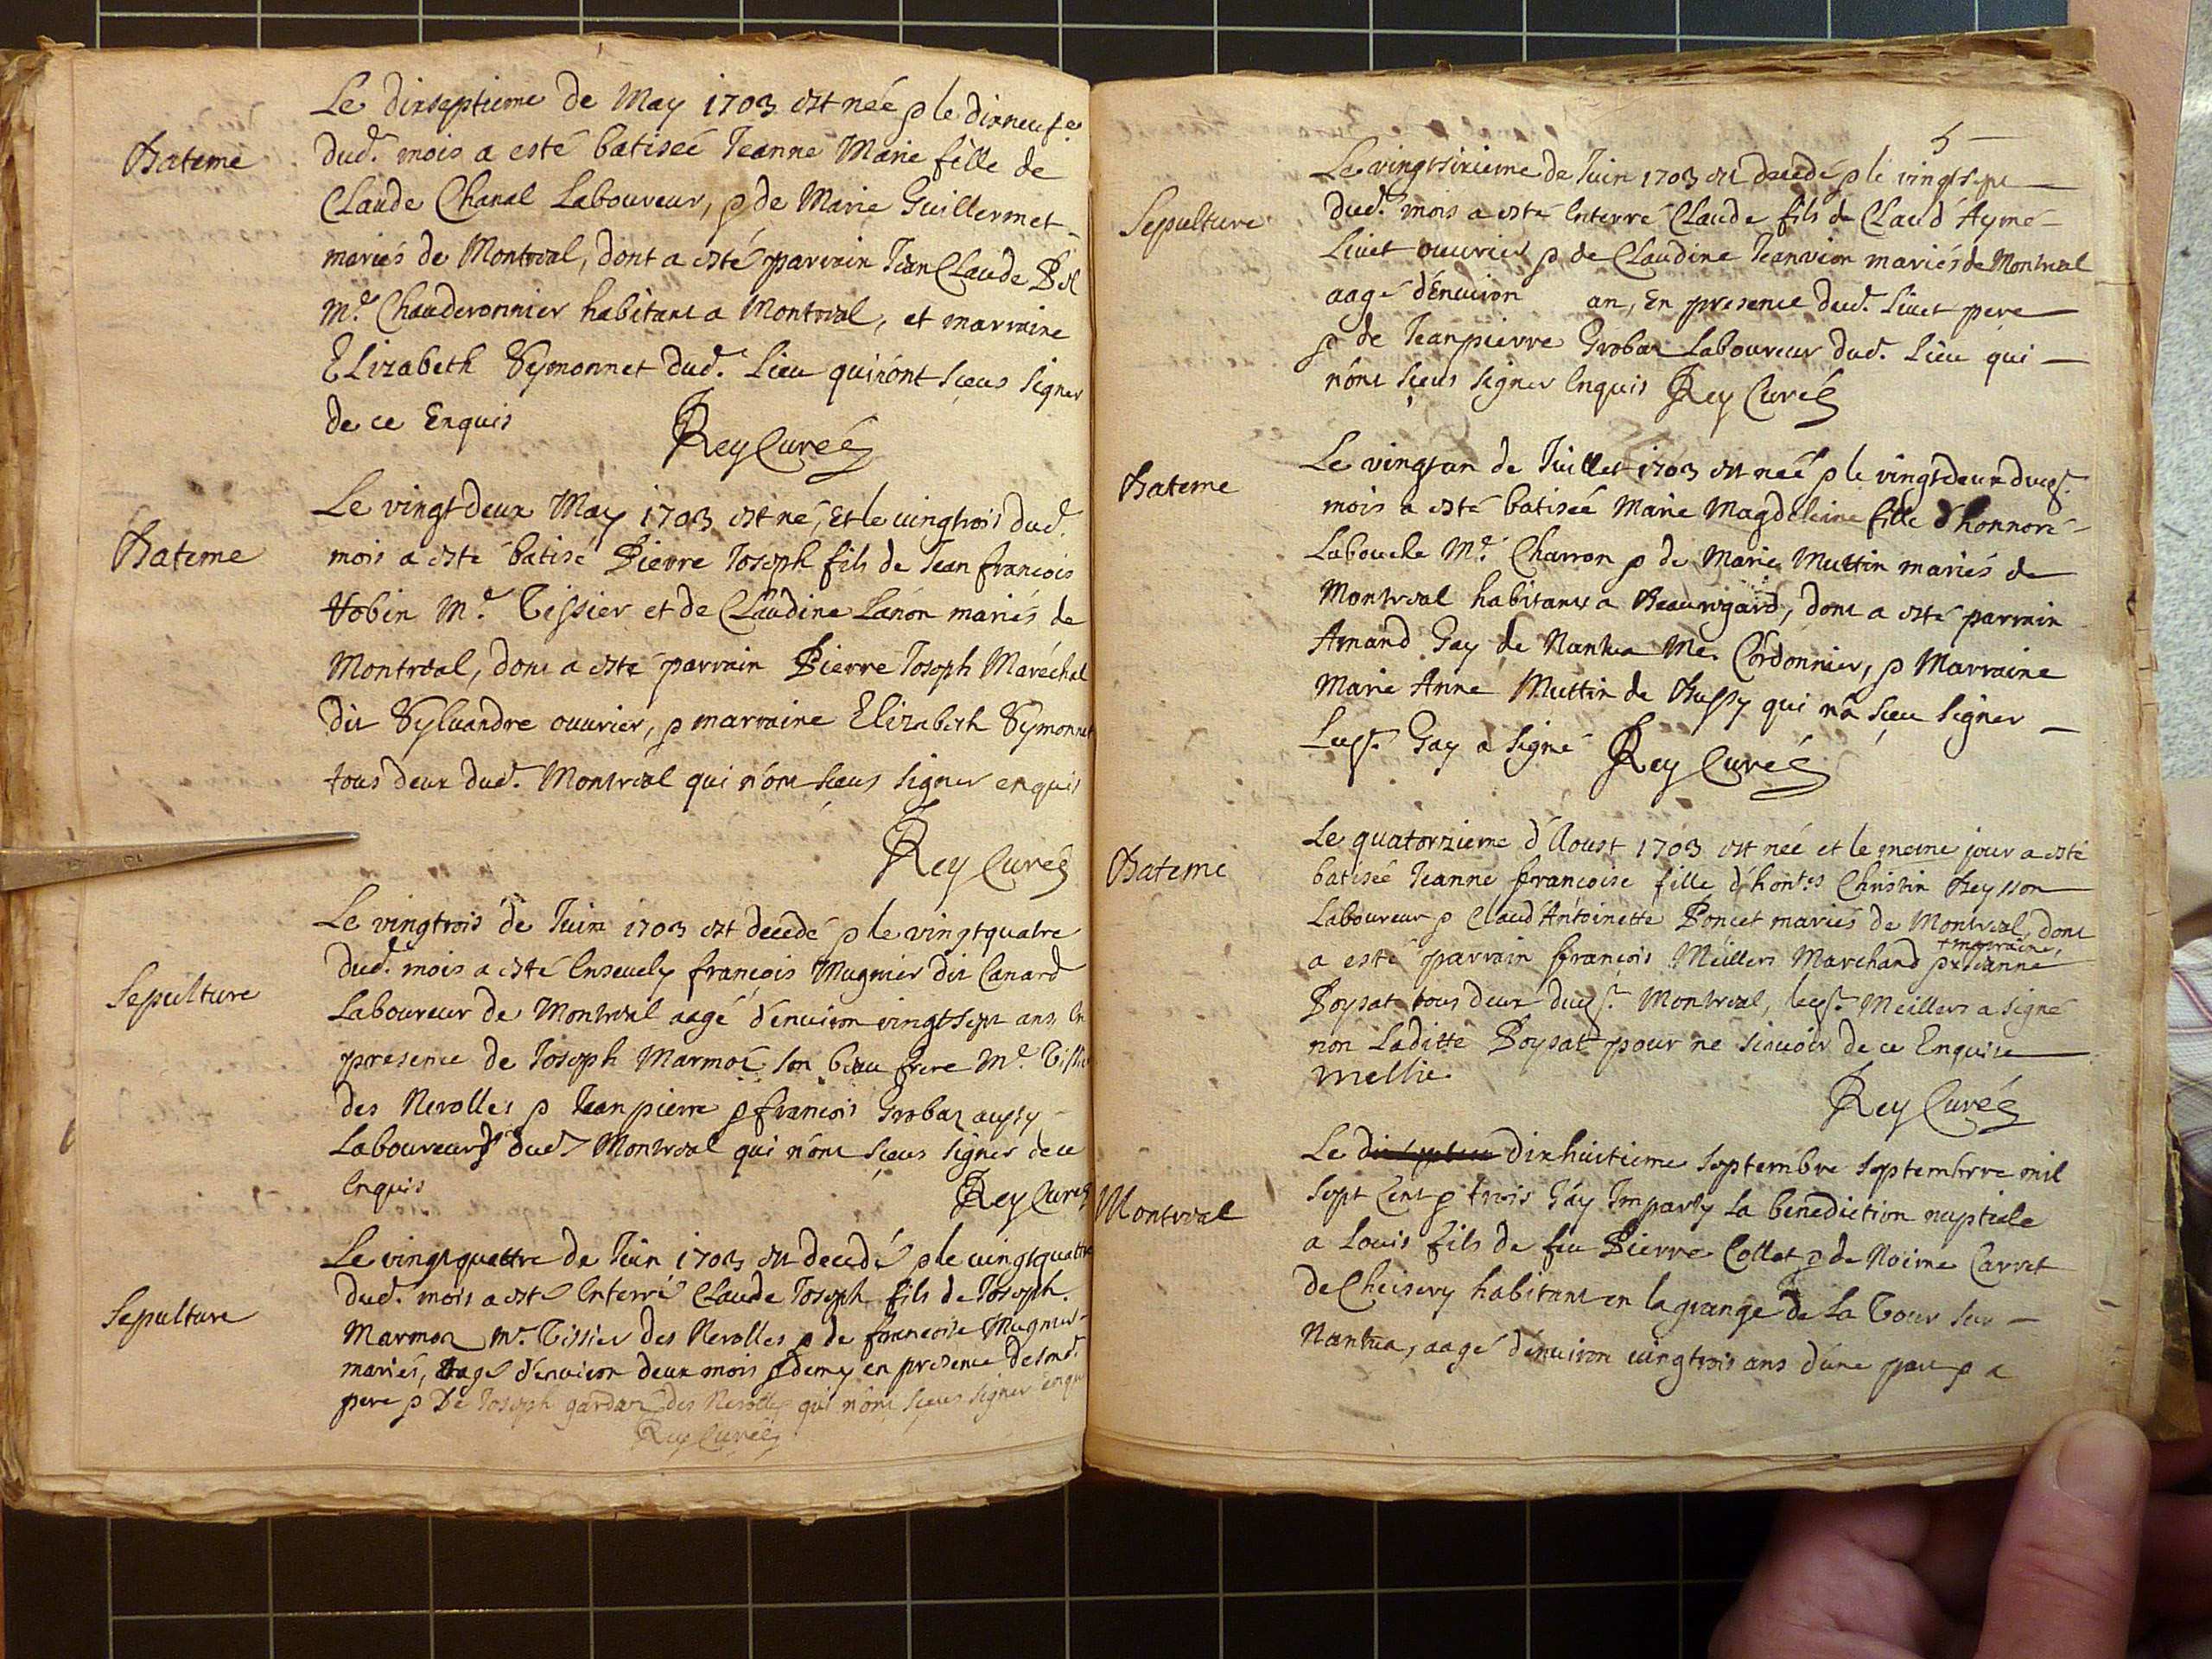 Bateme
Le dixseptieme de May 1703 est née & le dixneufe
dud. mois a esté batiseé Jeanne Marie fille de
Claude Chanal Laboureur, & de Marie Guillermet
mariés de Montreal, dont a esté parrain Jean Claude
Me Chauderonnier habitant a Montreal, et marraine
Elizabeth Symonnet dud. Lieu qui n'ont sceus signer
de ce Enquis
Rey Curé
Bateme
Le vingtdeux May 1703 est né, Et le vingtrois dud.
mois a esté batisé Pierre Joseph fils de Jean françois
Hobin Me Tissier et de Claudine Lanon mariés de
Montreal, dont a esté parrain Pierre Joseph Maréchal
dit Sylvandre ouvrier, & marraine Elizabeth Symonnet
tous deux dud. Montreal qui n'ont sceus signer enquis
Rey Curé
Sepulture
Le vingtrois de Juin 1703 est decedé & le vingtquatre
dud. mois a esté Ensevely françois Mugnier dit Canard
Laboureur de Montreal aagé d'environ vingtsept ans En
presence de Joseph Marmoz son beau frere Me Tissier
des Nerolles & Jean pierre & françois Grobaz aussy
Laboureurs dud. Montreal qui n'ont sceus signer de ce
Enquis
Rey Curé
Sepulture
Le vingtquattre de Juin 1703 est decedé & le vingtquattre
dud. mois a esté Enterré Claude Joseph fils de Joseph
Marmoz Me Tissier des Nerolles & de francoise Mugnier
mariés, aagé d'environ deux mois & demy en presence
pere & De Joseph gardaz des Nerolles qui n'ont sceus signer enquis
Rey Curé
5
Sepulture
Le vingtsixieme de Juin 1703 est decedé & le vingtsept
dud. mois a esté Enterré Claude fils de Claud Aymé
Livet ouvrier & de Claudine Jeanvion mariés de Montreal
aagé d'Environ an, En presence dud. Livet pere
& de Jeanpierre Grobaz Laboureur dud. Lieu qui
n'ont sceus signer Enquis Rey Curé
Bateme
Le vingtun de Juillet 1703 est neé & le vingtdeux
mois a esté batiseé Marie Magdeleine fille d'honnoré
Labouele Me Charron & de Marie Muttin mariés de
Montreal habitants a Beauregard, dont a esté parrain
Amand Gay de Nantua Me. Cordonnier, & Marraine
Marie Anne Muttin de Bussy qui n'a sceu signer
Gay a signé Rey Curé
Bateme
Le quatorzieme d'Aoust 1703 est neé et le meme jour a esté
batiseé Jeanne francoise fille d'hon.es Christin Beysson
Laboureur & Claud'Antoinette Poncet mariés de Montreal, dont
a esté parrain francois Meillers Marchand & Jeanne
+ marraine
Poysat tous deux Montreal, Meillers a signé
non Laditte Poysat pour ne scavoir de ce Enquise
mellie
Rey Curé
Montreal
Le dixhuitieme septembre septembre mil
sept cent & trois j'ay Imparty La benediction nuptiale
a Louis fils de feu Pierre Collet & de Noime Carret
de Cheisery habitant en la grange de La Tour sur
Nantua, aagé d'environ vingtrois ans d'une part & a